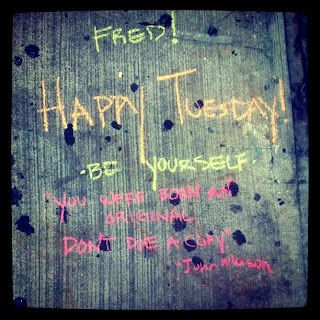 FRED!
HAPPY TUESDAY!
·BE YOURSELF·
"YOU WERE BORN AN
ORIGINAL.
DON'T DIE A COPY."
-John Mason